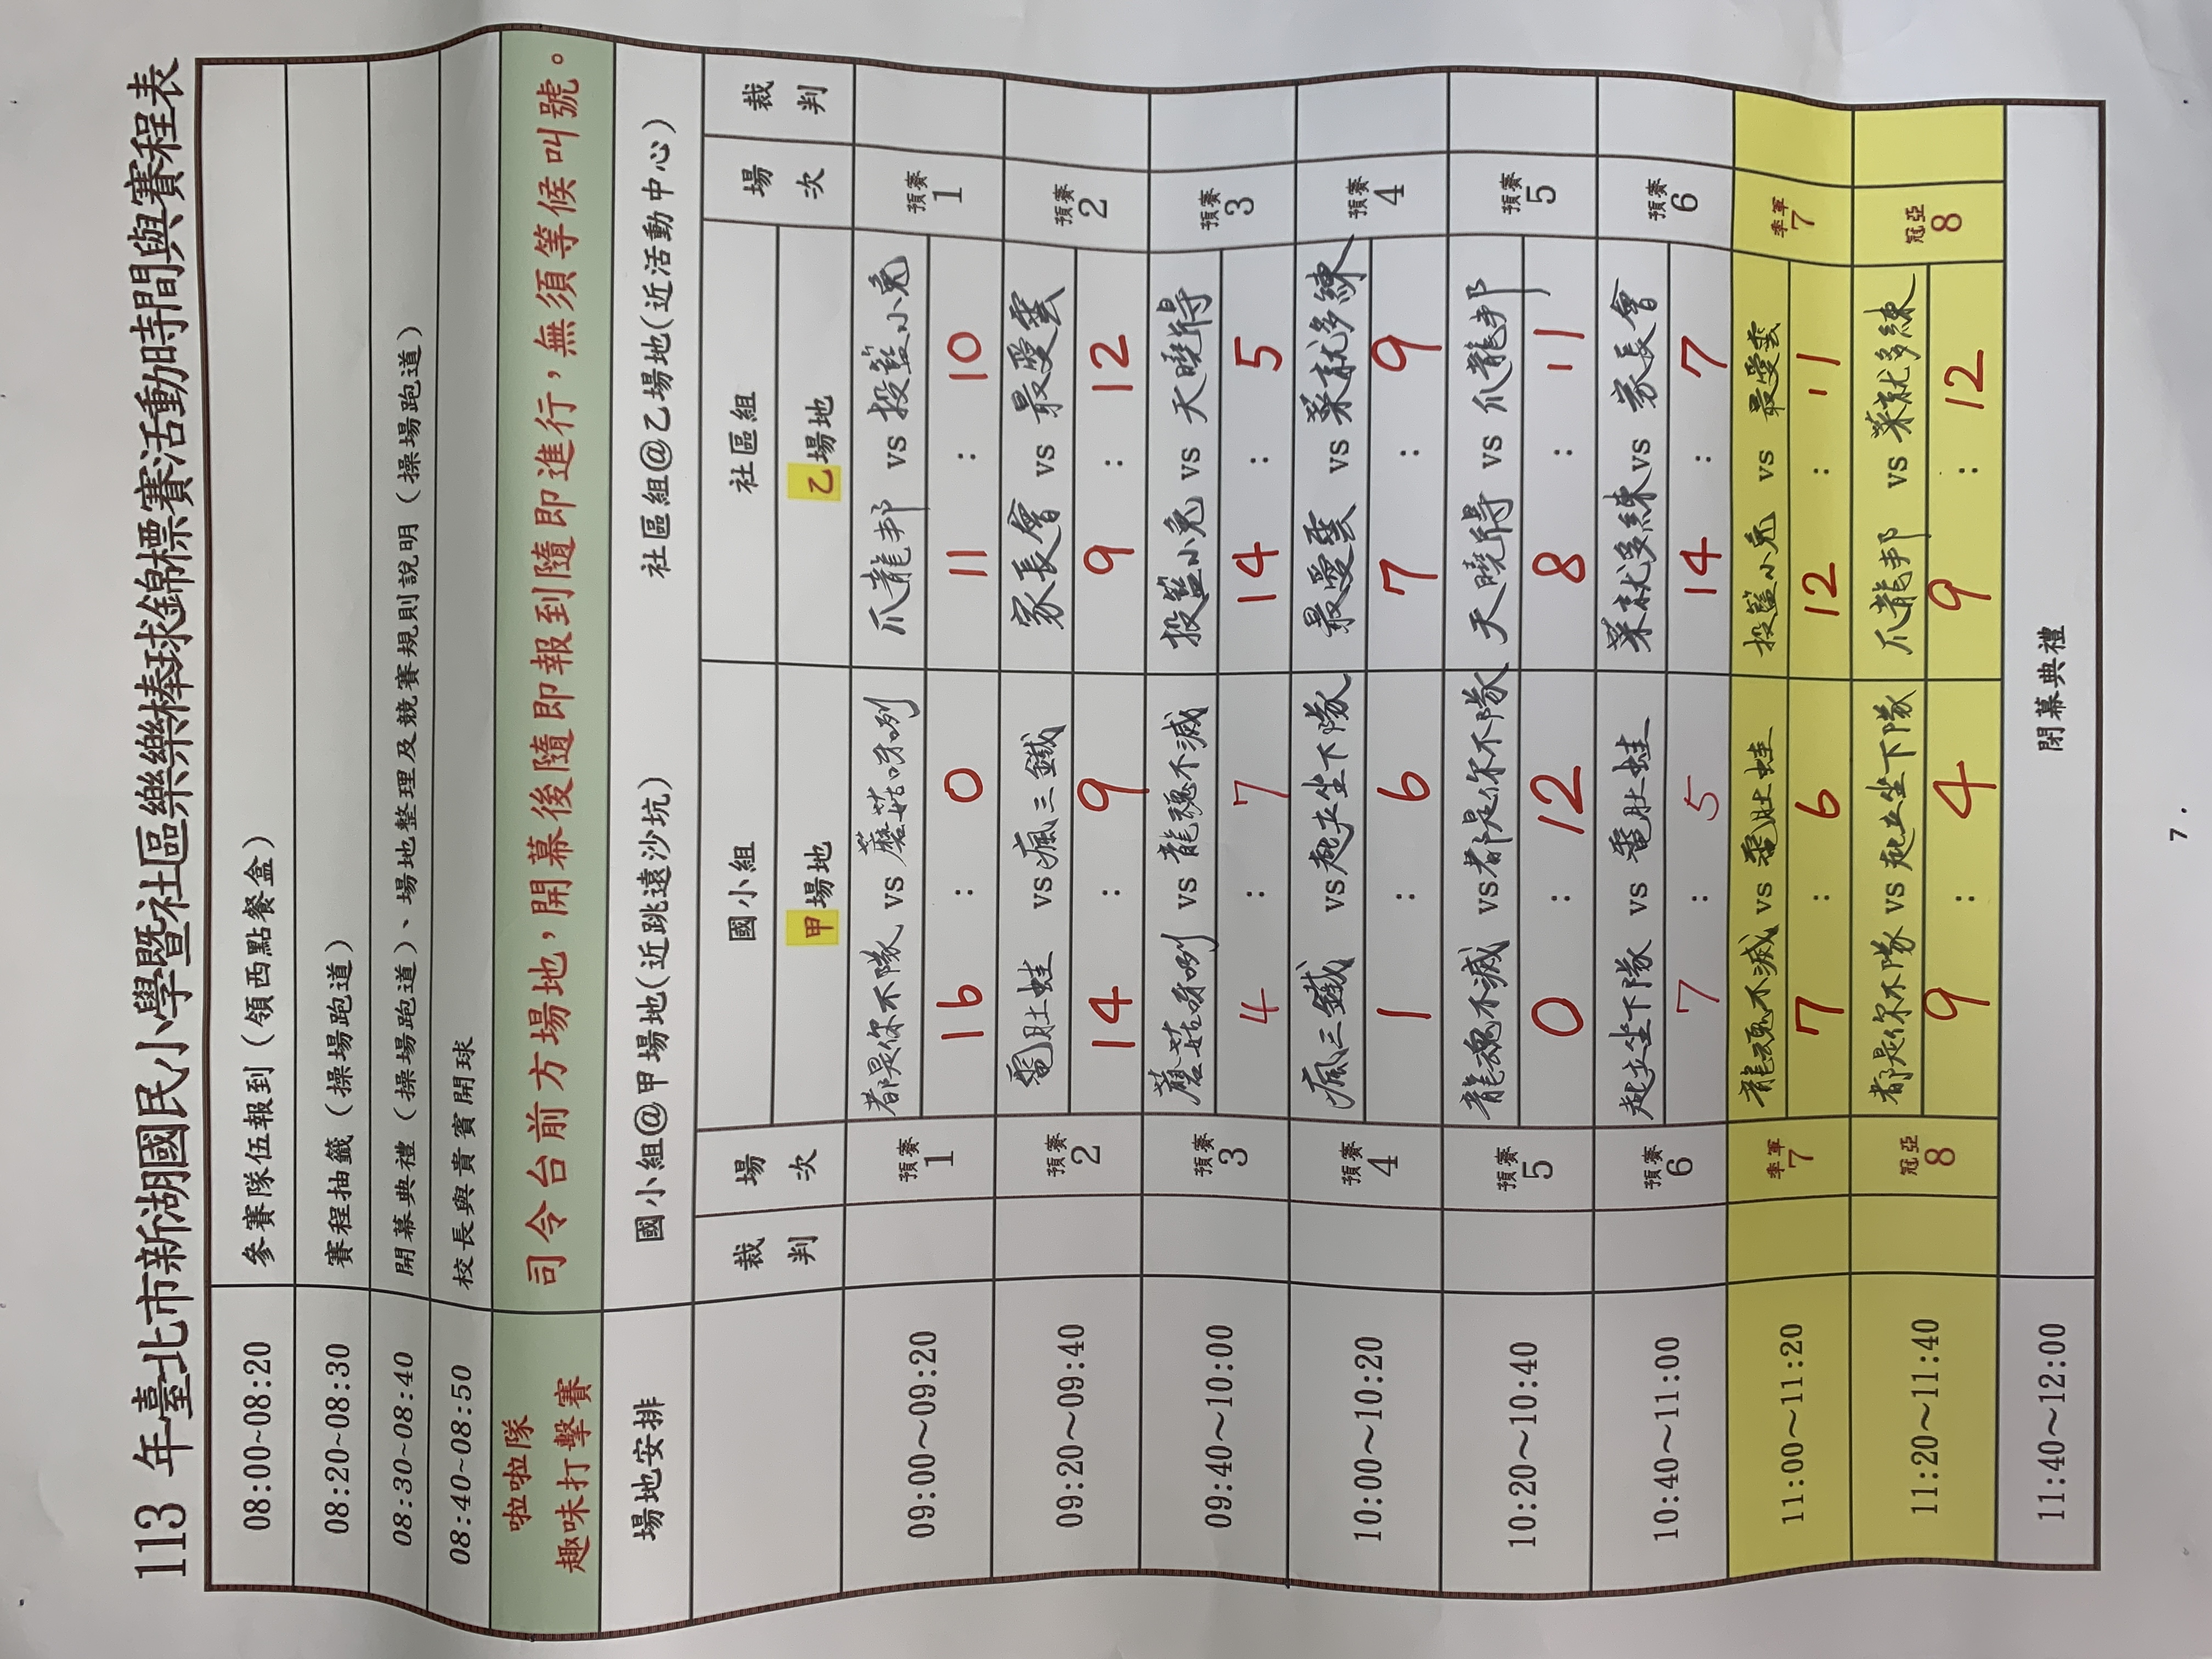 113 年臺北市新湖國民小學暨社區樂樂棒球錦標賽活動時間與賽程表
08:00~08:20 參賽隊伍報到（領西點餐盒）
08:20~08:30 賽程抽籤（操場跑道）
08:30~08:40 開幕典禮（操場跑道）、場地整理及競賽規則說明（操場跑道）
08:40~08:50 校長與貴賓開球
啦啦隊
趣味打擊賽 司令台前方場地，開幕後隨即報到隨即進行，無須等候叫號。
場地安排 國小組@甲場地(近跳遠沙坑) 社區組@乙場地(近活動中心)
裁判 場次 國小組 社區組 場次 裁判
甲場地 乙場地
09:00～09:20 預賽 1 都是你不隊 vs 蘑菇呀咧 爪龍邦 vs 投籃小兔 預賽 1
16 : 0 11 : 10
09:20～09:40 預賽 2 電肚蛙 vs 瘋三鐵 家長會 vs 最愛雲 預賽 2
14 : 9 9 : 12
09:40～10:00 預賽 3 蘑菇呀咧 vs 龍魂不滅 投籃小兔 vs 天曉得 預賽 3
4 : 7 14 : 5
10:00～10:20 預賽 4 瘋三鐵 vs 起立坐下隊 最愛雲 vs 菜就多練 預賽 4
1 : 6 7 : 9
10:20～10:40 預賽 5 龍魂不滅 vs 都是你不隊 天曉得 vs 爪龍邦 預賽 5
0 : 12 8 : 11
10:40～11:00 預賽 6 起立坐下隊 vs 電肚蛙 菜就多練 vs 家長會 預賽 6
7 : 5 14 : 7
11:00～11:20 季軍 7 龍魂不滅 vs 電肚蛙 投籃小兔 vs 最愛雲 季軍 7
7 : 6 12 : 11
11:20～11:40 冠亞 8 都是你不隊 vs 起立坐下隊 爪龍邦 vs 菜就多練 冠亞 8
9 : 4 9 : 12
11:40～12:00 閉幕典禮
7 .